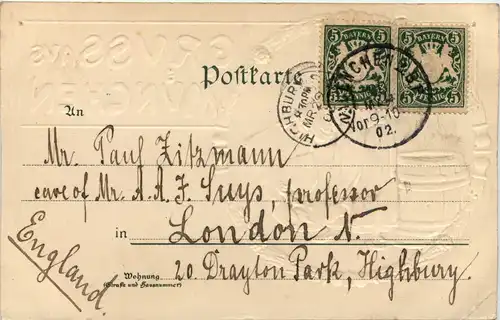 GRUSS aus
MÜNCHEN
5 BAYERN 5
5 BAYERN 5
Postkarte
HIGHBURY
MÜNCHEN 2 BP
Vor 9-10
02.
An
Mr. Paul Zitzmann
care of Mr. A. A. F. Suys, professor
in London N.
England.
Wohnung
(Straße und Hausnummer)
20 Drayton Park, Highbury.